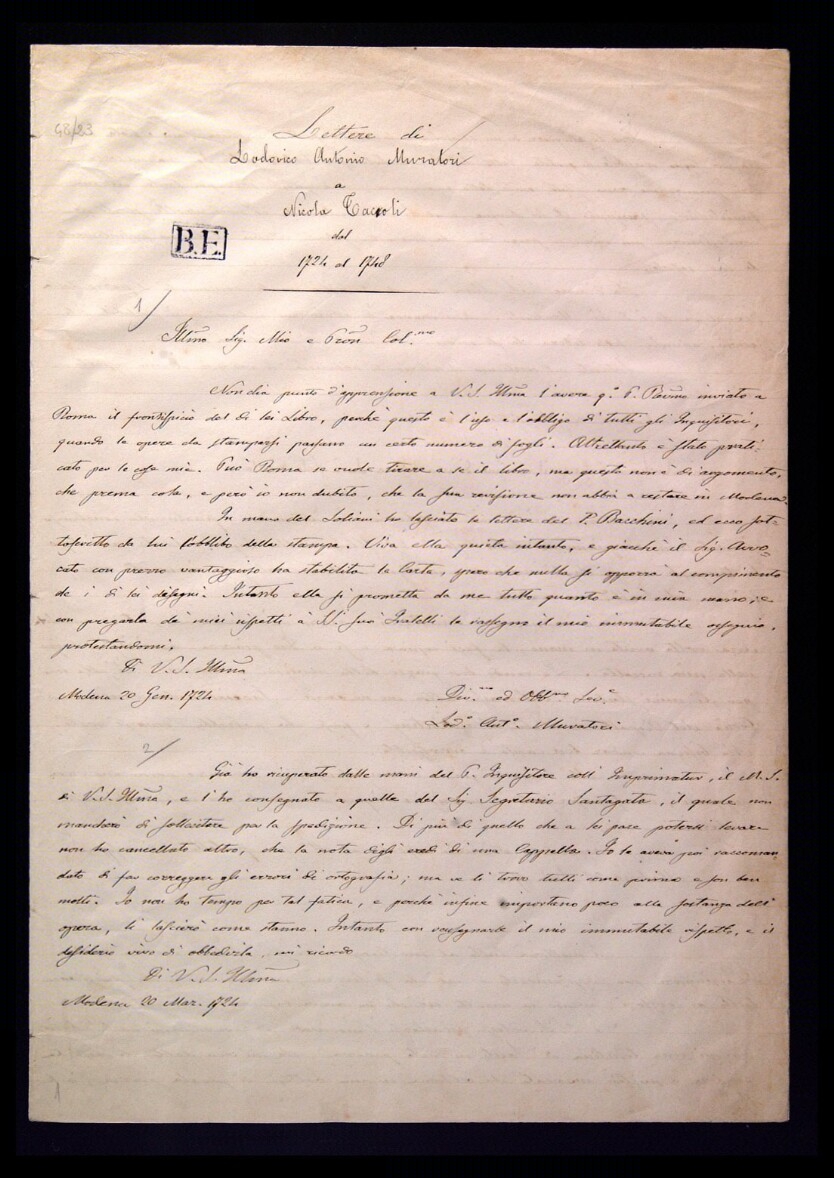 68/23
Lettere di
Lodovico Antonio Muratori
a
Nicola Taccoli
dal
1724 al 1748
B.E.
1/
Illmo Sig. Mio e Pron Col.mo
Non dia punto d'apprensione a V. S. Illma l'avere q.o P. inviato a
Roma il frontispicio del di lei Libro, perchè questo è l'uso e l'obbligo di tutti gli Inquisitori,
quando le opere da stamparsi passano un certo numero di fogli. Altrettanto è stato prati-
cato per le cose mie. Può Roma se vuole tirare a se il libro, ma questo non è di argomento,
che prema colà, e però io non dubito, che la sua revisione non abbia a restare in Modena.
In mano del Soliani ho lasciato le lettere del P. Bacchini, ed ecco sot-
toscritto da lui l'obbligo della stampa. Viva ella quieta intanto, e giacchè il Sig. Avvo-
cato con prezzo vantaggioso ha stabilita la Carta, spero che nulla si opporrà al compimento
de i di lei disegni. Intanto ella si prometta da me tutto quanto è in mia mano; e
con pregarla de' miei rispetti a' Fratelli le rassegno il mio immutabile ossequio,
protestandomi,
Di V. S. Illma
Modena 20 Gen. 1724
Div.mo ed Obb.mo Ser.e
Lod.o Ant.o Muratori
2/
Già ho ricuperato dalle mani del P. Inquisitore coll' Imprimatur, il M.S.
di V. S. Illma, e l'ho consegnato a quelle del Sig. Segretario Santagata, il quale non
mancherà di sollecitare per la spedizione. Di più di quello che a lei pace potersi levare
non ho cancellato altro, che la nota degli eredi di una Cappella. Io le aveva poi raccoman-
dato di far correggere gli errori di ortografia; ma ve li trovo tutti come prima e son ben
molti. Io non ho tempo per tal fatica, e perchè infine importano poco alla sostanza dell'
opera, li lascierò come stanno. Intanto con rassegnarle il mio immutabile rispetto, e il
desiderio vivo di obbedirla, mi ricordo
Di V. S. Illma
Modena 20 Mar. 1724
1